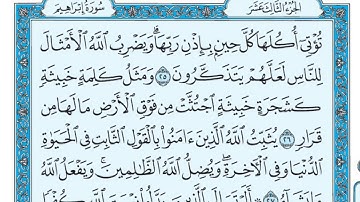 سُورَةُ إِبْرَاهِيمَ الجُزْءُ الثَّالِثَ عَشَرَ
تُؤْتِيٓ أُكُلَهَا كُلَّ حِينٍۭ بِإِذْنِ رَبِّهَاۗ وَيَضْرِبُ ٱللَّهُ ٱلْأَمْثَالَ
لِلنَّاسِ لَعَلَّهُمْ يَتَذَكَّرُونَ ٢٥ وَمَثَلُ كَلِمَةٍ خَبِيثَةٍ
كَشَجَرَةٍ خَبِيثَةٍ ٱجْتُثَّتْ مِن فَوْقِ ٱلْأَرْضِ مَا لَهَا مِن
قَرَارٍ ٢٦ يُثَبِّتُ ٱللَّهُ ٱلَّذِينَ ءَامَنُوا۟ بِٱلْقَوْلِ ٱلثَّابِتِ فِي ٱلْحَيَوٰةِ
ٱلدُّنْيَا وَفِي ٱلْءَاخِرَةِۖ وَيُضِلُّ ٱللَّهُ ٱلظَّٰلِمِينَۚ وَيَفْعَلُ ٱللَّهُ